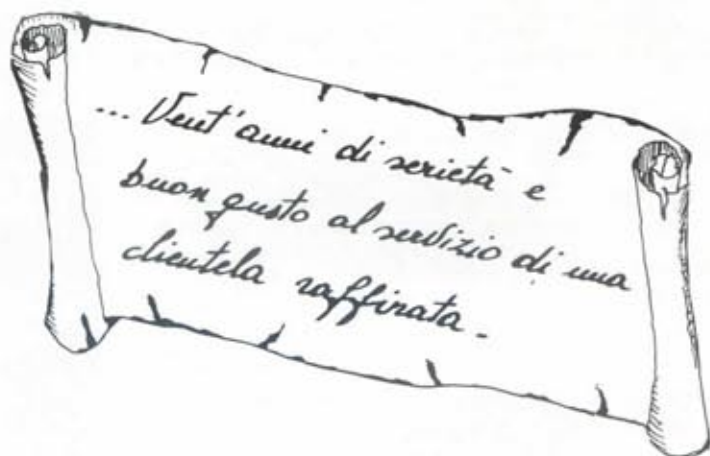 ... Vent'anni di serietà e
buon gusto al servizio di una
clientela raffinata.